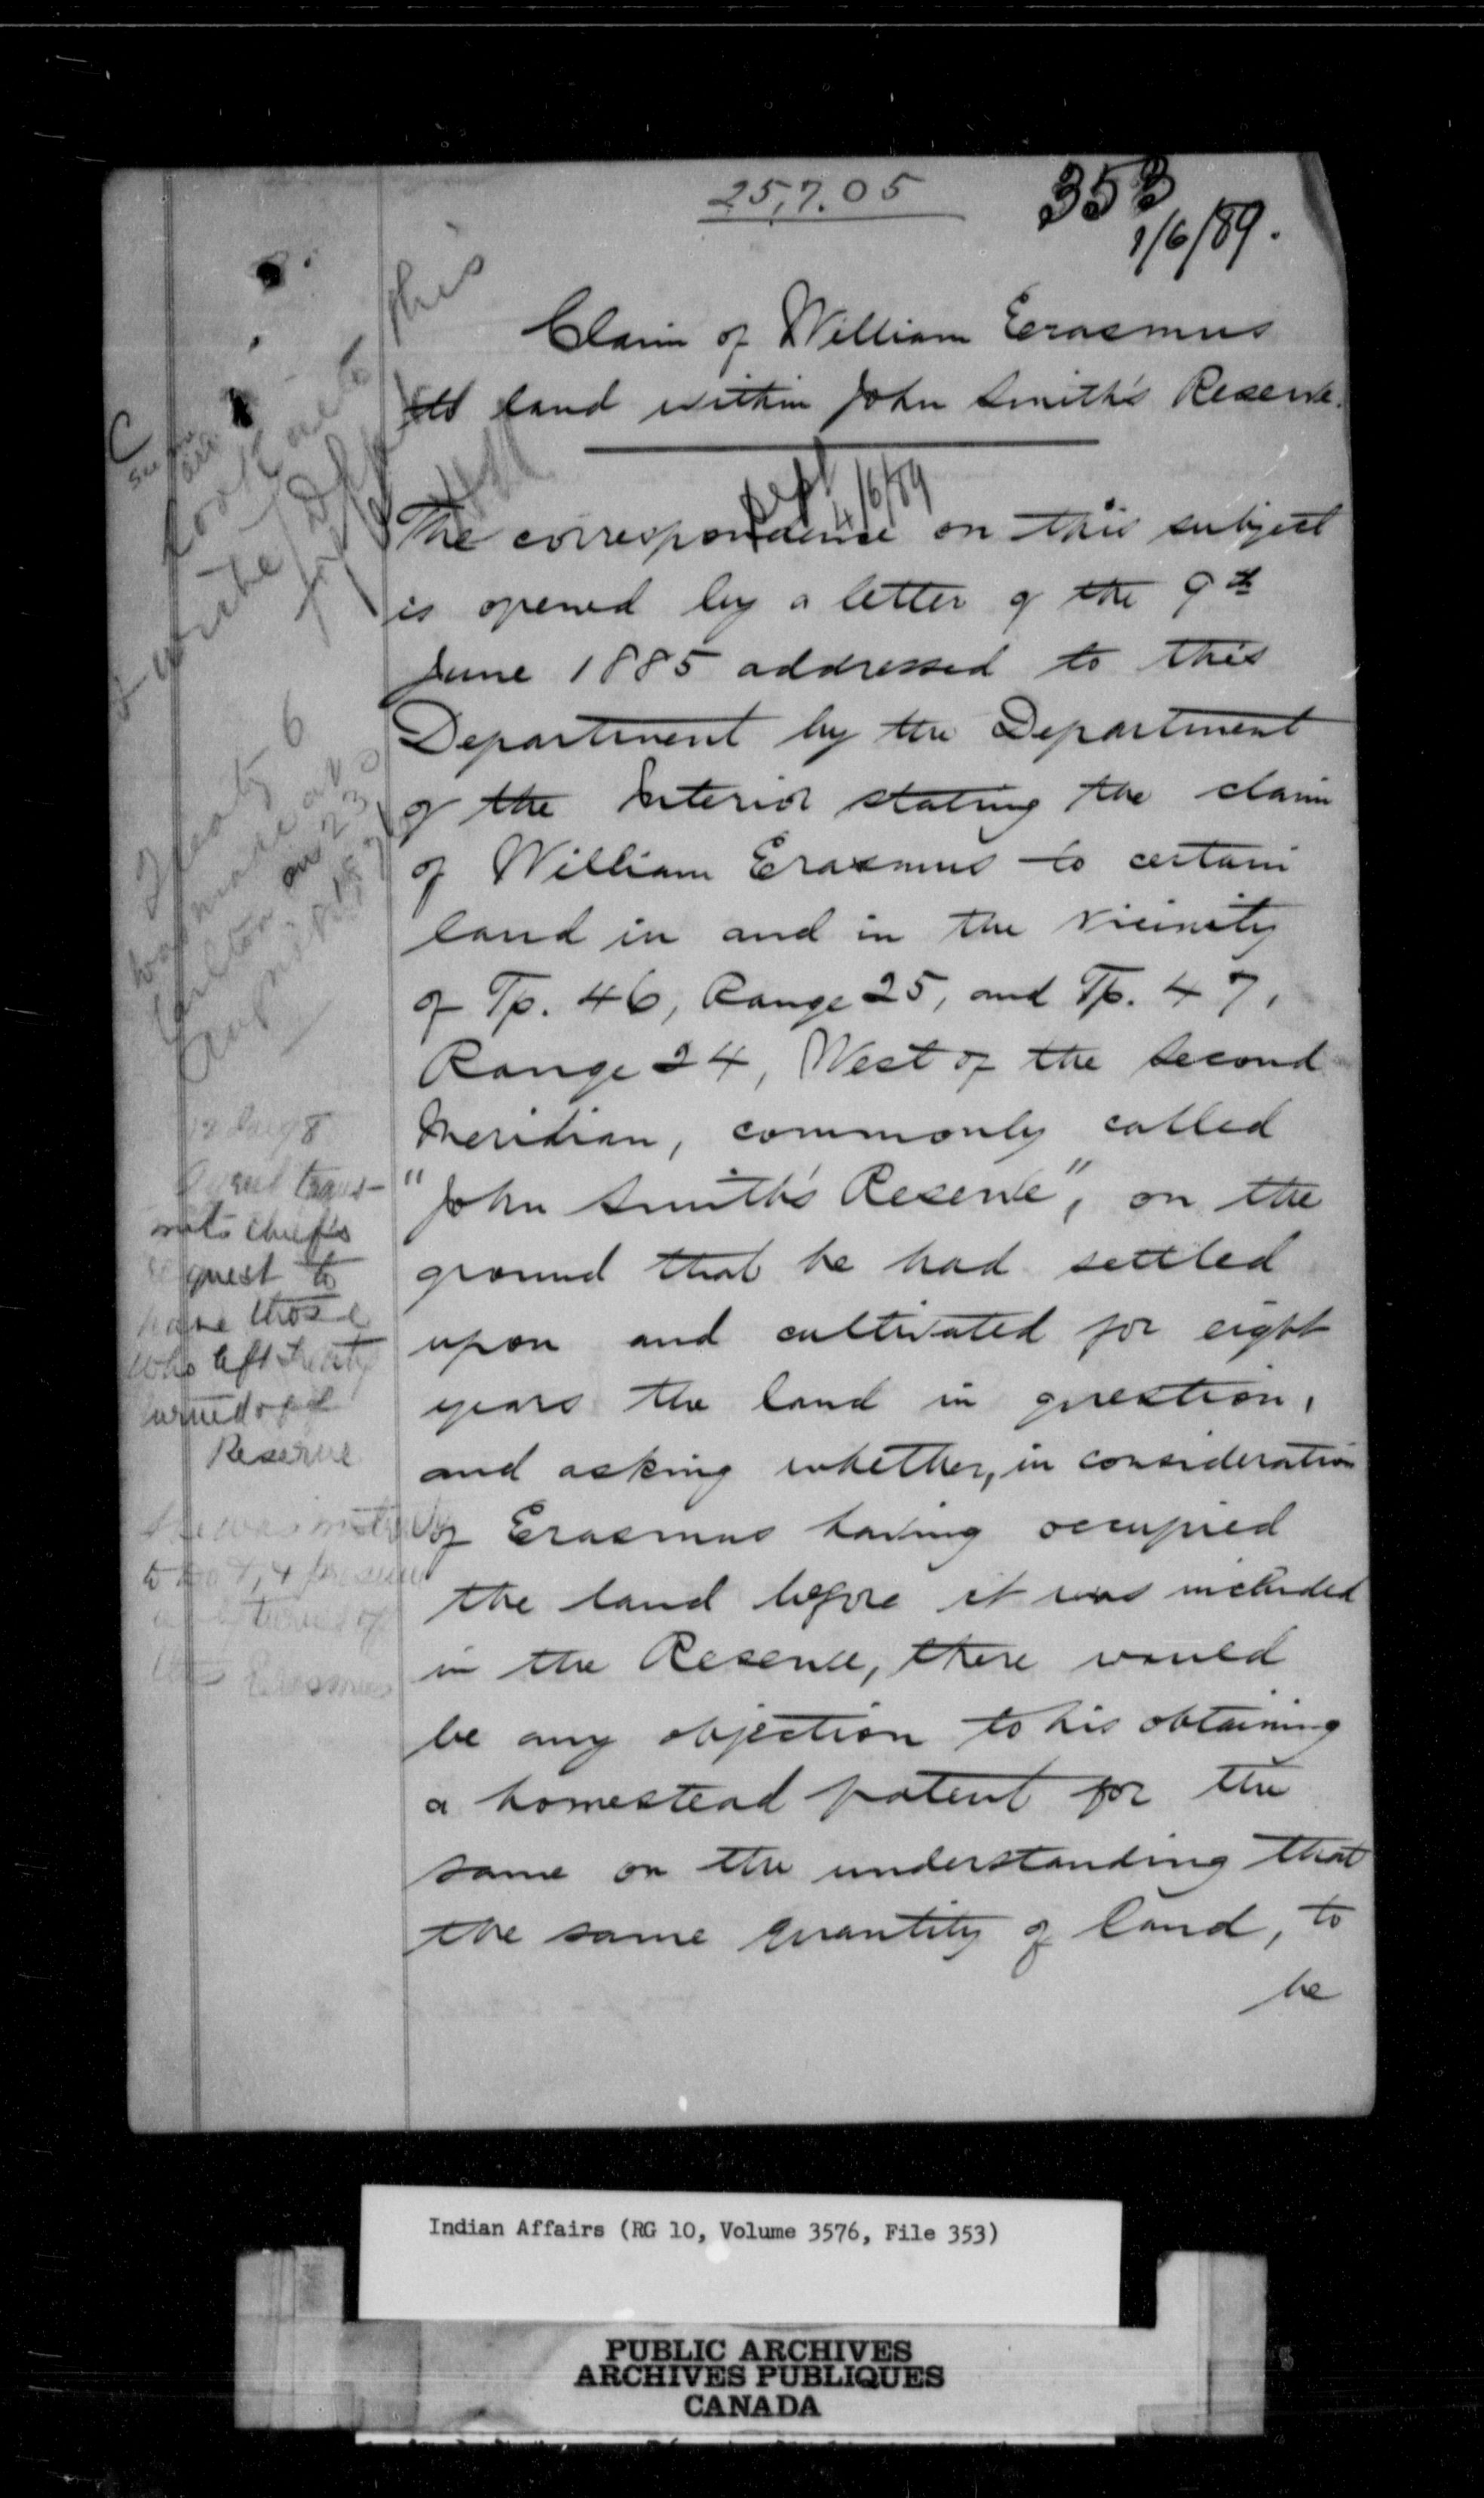 25,7.05
353
1/6/89.
Claim of William Erasmus
to land within John Smith's Reserve.
Dept 4/6/89
The correspondence on this subject
is opened by a letter of the 9th
June 1885 addressed to this
Department by the Department
of the Interior stating the claim
of William Erasmus to certain
land in and in the vicinity
of Tp. 46, Range 25, and Tp. 47,
Range 24, West of the Second
Meridian, commonly called
"John Smith's Reserve", on the
ground that he had settled
upon and cultivated for eight
years the land in question,
and asking whether, in consideration
of Erasmus having occupied
the land before it was included
in the Reserve, there would
be any objection to his obtaining
a homestead patent for the
same on the understanding that
the same quantity of land, to
be
this
look
write
Treaty 6
was made at
Carlton on 23
August 1876
Agent trans-
mits chief's
request to
have those
who left Treaty
turned off
Reserve
Erasmus
Indian Affairs (RG 10, Volume 3576, File 353)
PUBLIC ARCHIVES
ARCHIVES PUBLIQUES
CANADA